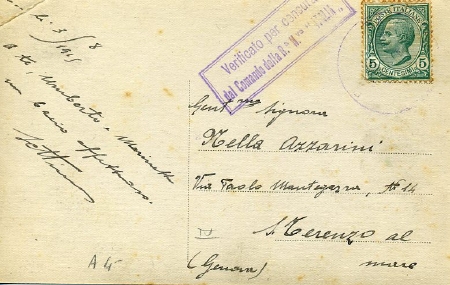 li 3/8
1915
a te, Umberto e
un bacio affettuoso.
Verificato per censura
dal Comando della R.ª N.
POSTE ITALIANE
5 CENTESIMI 5
Gent.ma Signora
Nella Azzarini
Via Paolo Mantegazza, N° 14
S. Terenzo al
mare
(Genova)
A 45